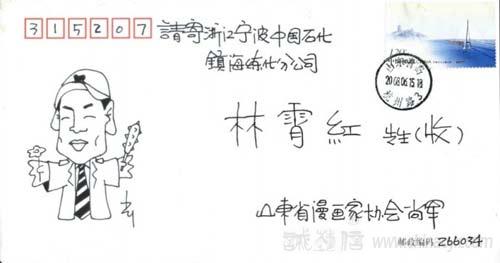 315207
請寄浙江宁波中国石化
鎮海炼化分公司
林霄紅 先生(收)
山東省漫画家协会尚军
邮政编码 266034